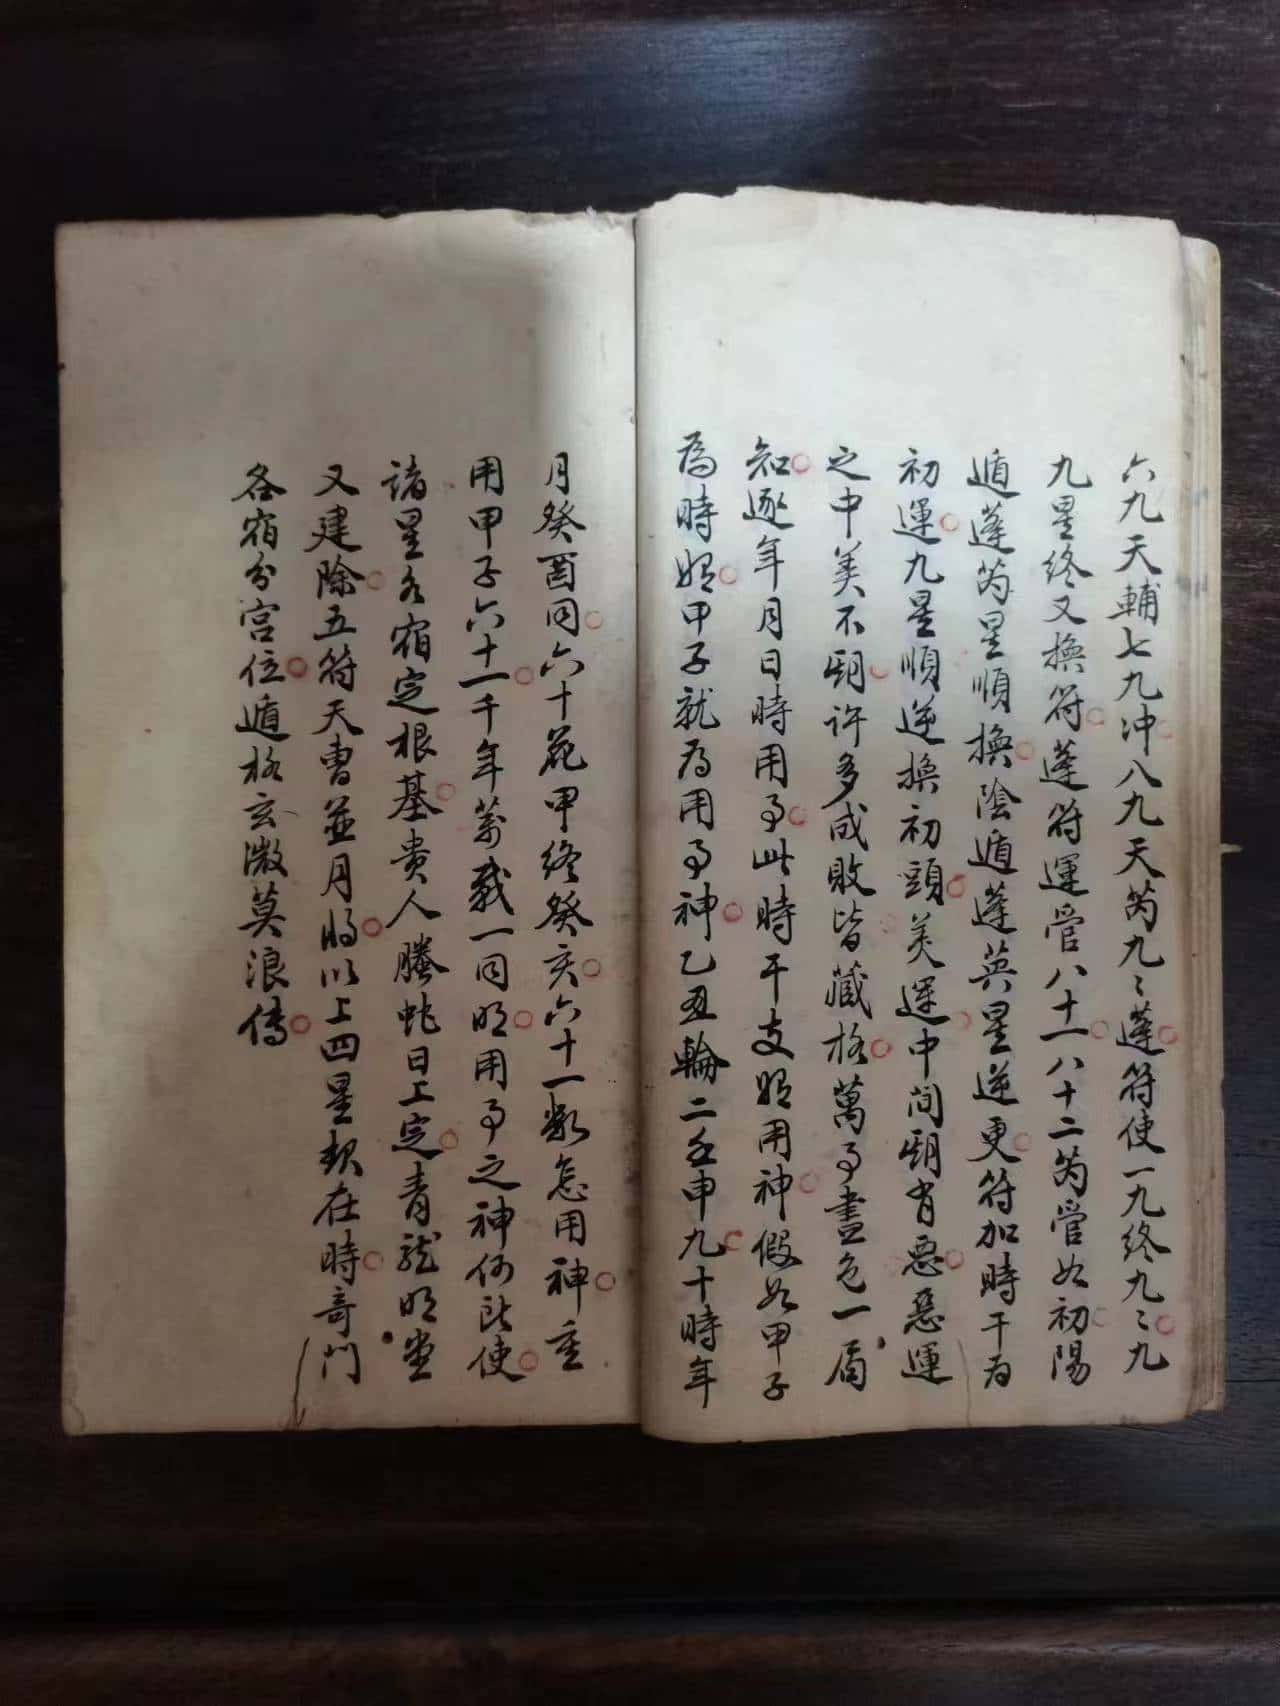 六九天輔七九冲八九天芮九〻蓬符使一九终九〻九
九星终又換符蓬符運管八十一八十二芮管如初陽
遁蓬芮星順換陰遁蓬英星逆更符加時干为
初運九星順逆換初頭美運中间期有惡惡運
之中美不期許多成敗皆藏格萬事盡包一局
知逐年月日時用事此時干支明用神假如甲子
為時明甲子就为用事神乙丑輪二壬申九十時年
月癸酉同六十花甲终癸亥六十一数怎用神重
用甲子六十一千年萬載一同明用事之神何所使
諸星各宿定根基贵人螣蛇日上定青龍明堂
又建除五符天曹並月将以上四星契在時奇門
各宿分宫位遁格玄微莫浪傳